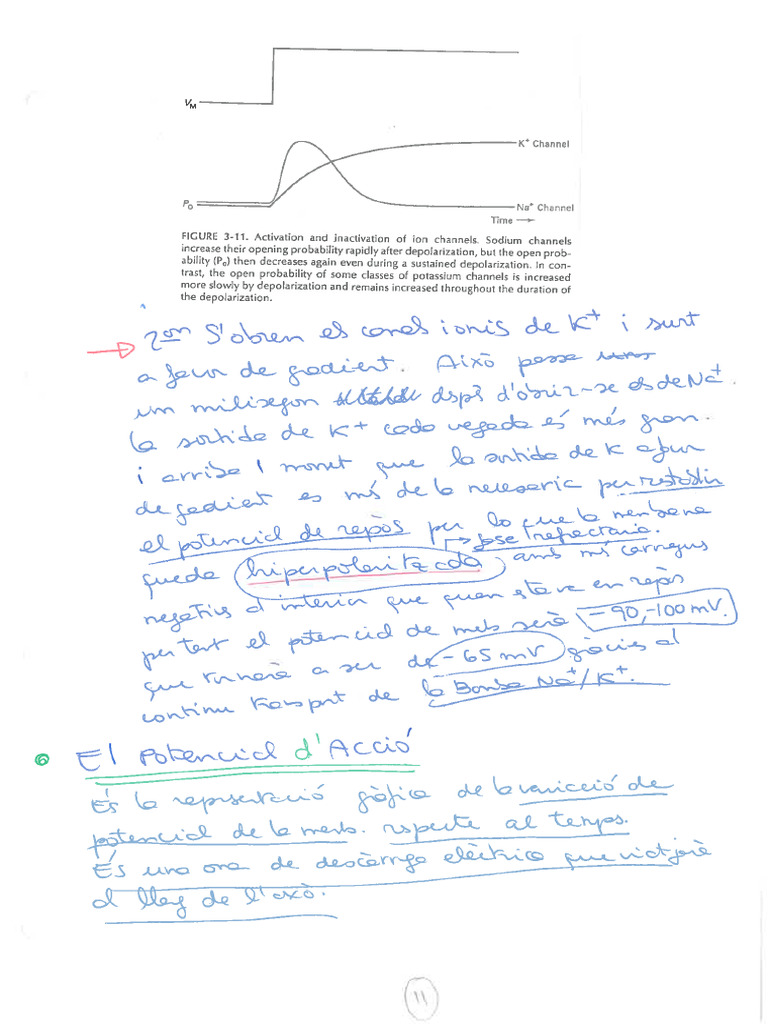 V_M
K⁺ Channel
P_o
Na⁺ Channel
Time →
FIGURE 3-11. Activation and inactivation of ion channels. Sodium channels
increase their opening probability rapidly after depolarization, but the open prob-
ability (P_o) then decreases again even during a sustained depolarization. In con-
trast, the open probability of some classes of potassium channels is increased
more slowly by depolarization and remains increased throughout the duration of
the depolarization.
→ 2on S'obren els canals ionis de K⁺ i surt
a favor de gradient. Això passa
un milisegon dsprs d'obrir-se els de Na⁺.
la sortida de K⁺ cada vegada és més gran.
i arriba 1 monet que la sortida de K a favor
de gradient es més de la necesaria per restablir
el potencial de repòs per lo que la membrana
→ fase refractaria.
queda hiperpolaritzada amb més carregues
negatives a l'interior que quan estava en repòs
per tant el potencial de memb serà -90,-100 mV.
que tornarà a ser de -65 mV gràcies al
continu transport de la Bomba Na⁺/K⁺.
6 El potencial d'Acció
És la representació gràfica de la variació de
potencial de la memb. respecte al temps.
És una ona de descàrrega elèctrica que viatjarà
al llarg de l'axò.
11